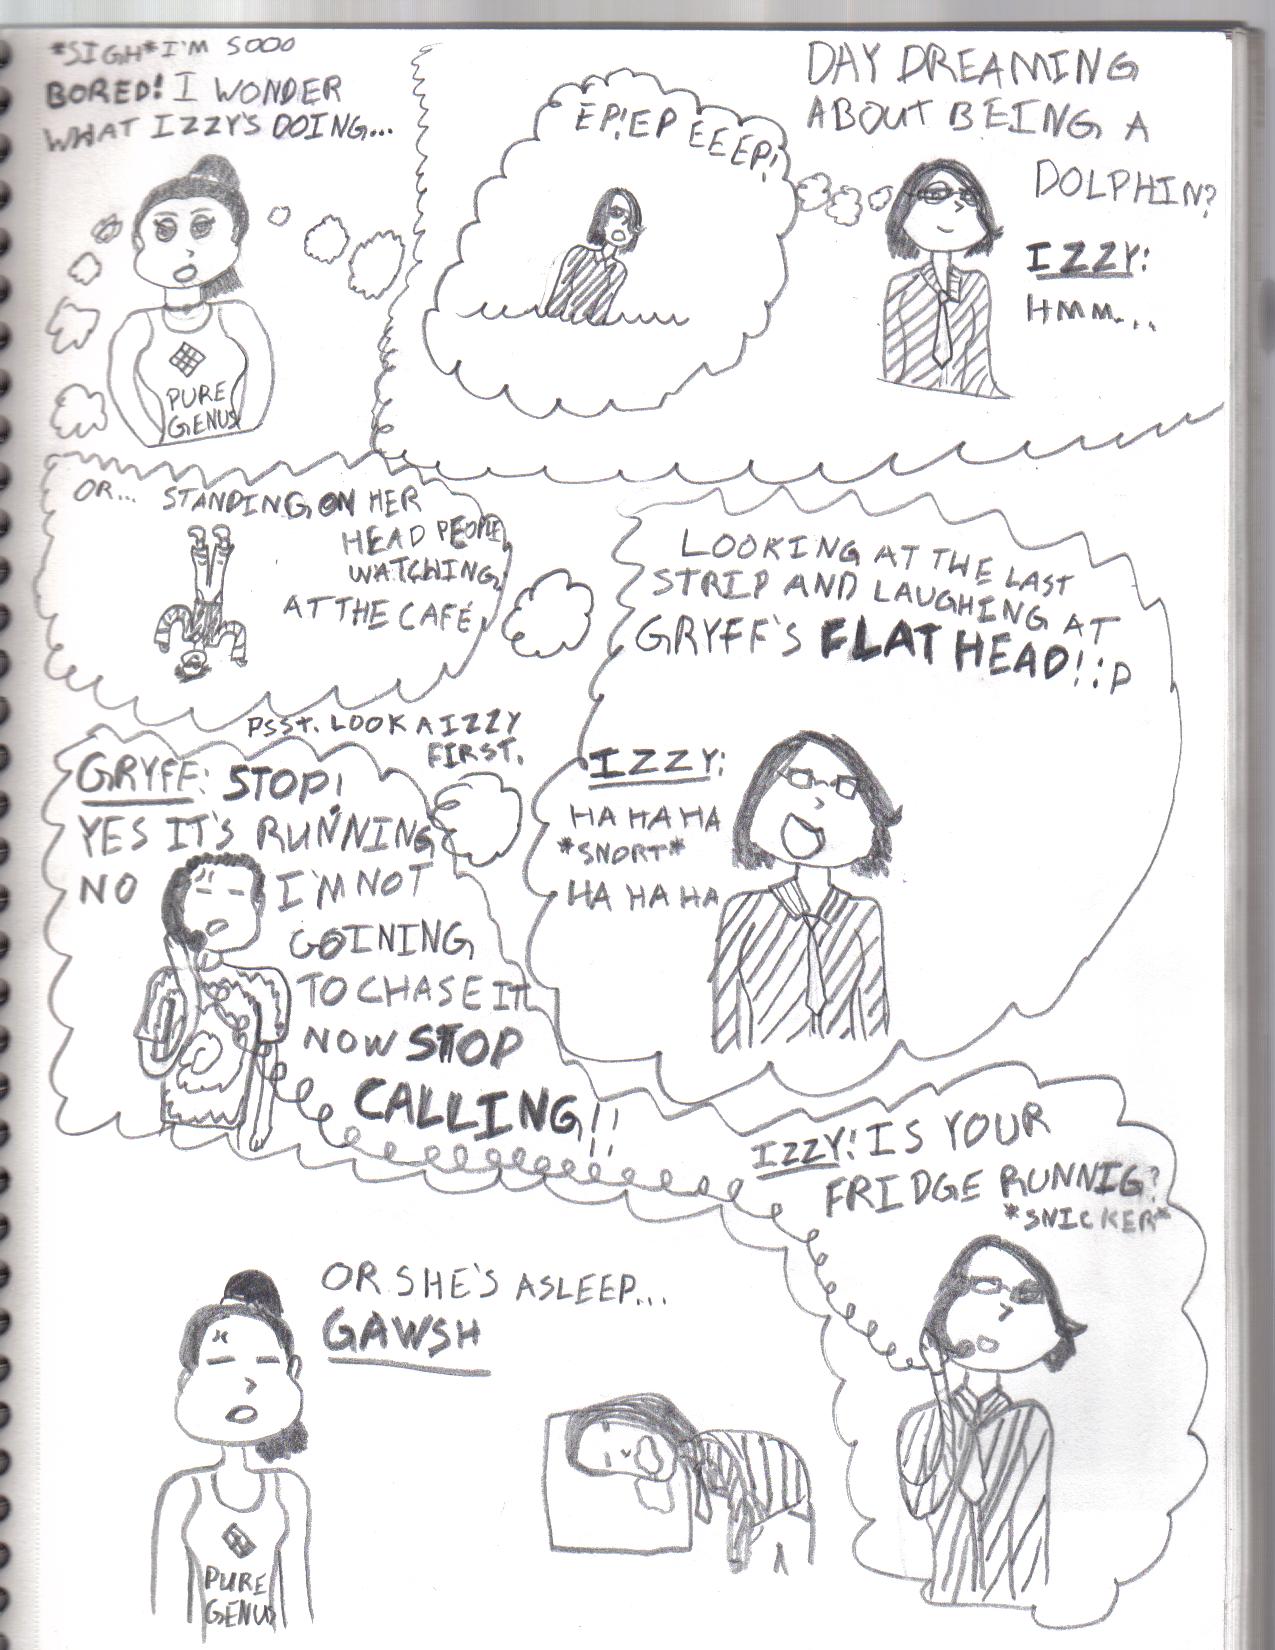 *SIGH* I'M SOOO
BORED! I WONDER
WHAT IZZY'S DOING...
PURE
GENUS
EP! EP EEEP!
DAY DREAMING
ABOUT BEING A
DOLPHIN?
IZZY:
HMM...
OR... STANDING ON HER
HEAD PEOPLE
WATCHING
AT THE CAFÉ
LOOKING AT THE LAST
STRIP AND LAUGHING AT
GRYFF'S FLAT HEAD! :P
IZZY:
HA HA HA
*SNORT*
HA HA HA
PSST. LOOK A IZZY
FIRST.
GRYFF: STOP!
YES IT'S RUNNING
NO I'M NOT
GOINING
TO CHASE IT
NOW STOP
CALLING!!
IZZY: IS YOUR
FRIDGE RUNNIG?
*SNICKER*
OR SHE'S ASLEEP...
GAWSH
PURE
GENUS